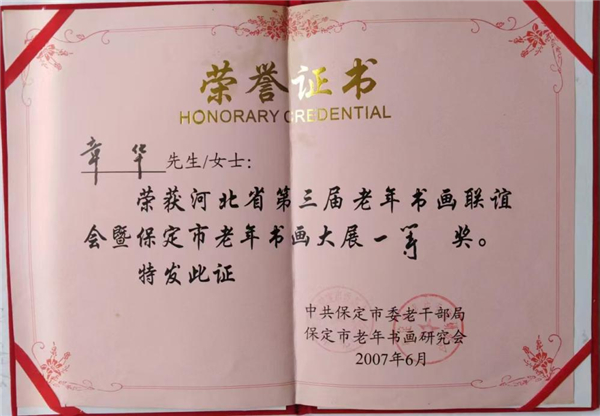 荣誉证书
HONORARY CREDENTIAL
章华 先生/女士:
荣获河北省第三届老年书画联谊
会暨保定市老年书画大展一等 奖。
特发此证
中共保定市委老干部局
保定市老年书画研究会
2007年6月